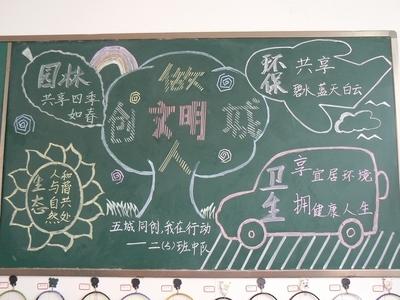 园林
共享四季
如春
做
创文明城
人
环保
共享
碧水 蓝天白云
生态
人与自然
和谐共处
卫生
享宜居环境
拥健康人生
五城同创,我在行动
——二(5)班中队